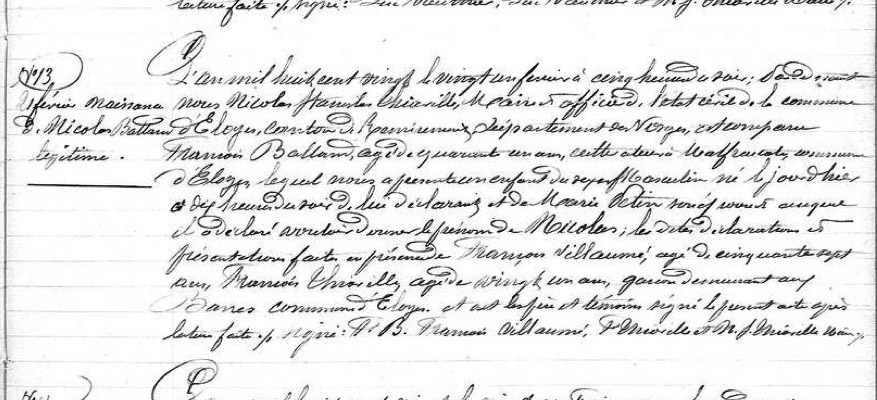 lecture faite ./. signé:
No 13
21 février naissance
de Nicolas Balland
légitime.
L'an mil huit cent vingt le vingt un fevrier à cinq heures du soir; Pardevant
nous Nicolas Stanislas Thiaville, Maire et officier de l'état civil de la commune
d'Eloyes, canton de Remiremont, Département des Vosges, est comparu
François Balland, agé de quarant un ans, cultivateur à commune
d'Eloyes, lequel nous a presenté un enfant du sexe Masculin né le jour d'hier
à dix heures du soir de lui déclarant et de Marie Petin son épouse et auquel
il a déclaré vouloir donner le prénom de Nicolas; les dites déclarations et
présentations faites en présence de François Villaumé, agé de cinquante sept
ans, François Thiaville, agé de vingt un ans, garcon demeurant aux
commune d'Eloyes. et ont les père et témoins signé le présent acte après
lecture faite ./. signé: F. B. François Villaumé, F Thiaville et N. S. Thiaville Maire